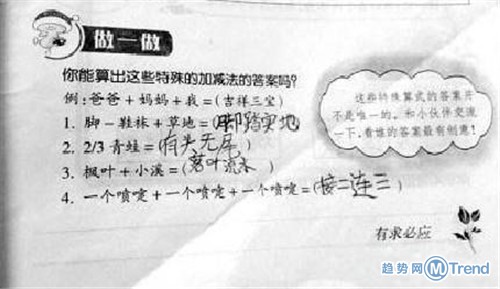 做一做
你能算出这些特殊的加减法的答案吗?
例:爸爸+妈妈+我=(吉祥三宝)
1. 脚-鞋袜+草地=(脚踏实地
2. 2/3青蛙=(有头无尾)
3. 枫叶+小溪=(落叶流水)
4. 一个喷嚏+一个喷嚏+一个喷嚏=(接二连三)
这些特殊算式的答案并
不是唯一的。和小伙伴交流
一下,看谁的答案最有创意!
有求必应
趋势网 M Trend